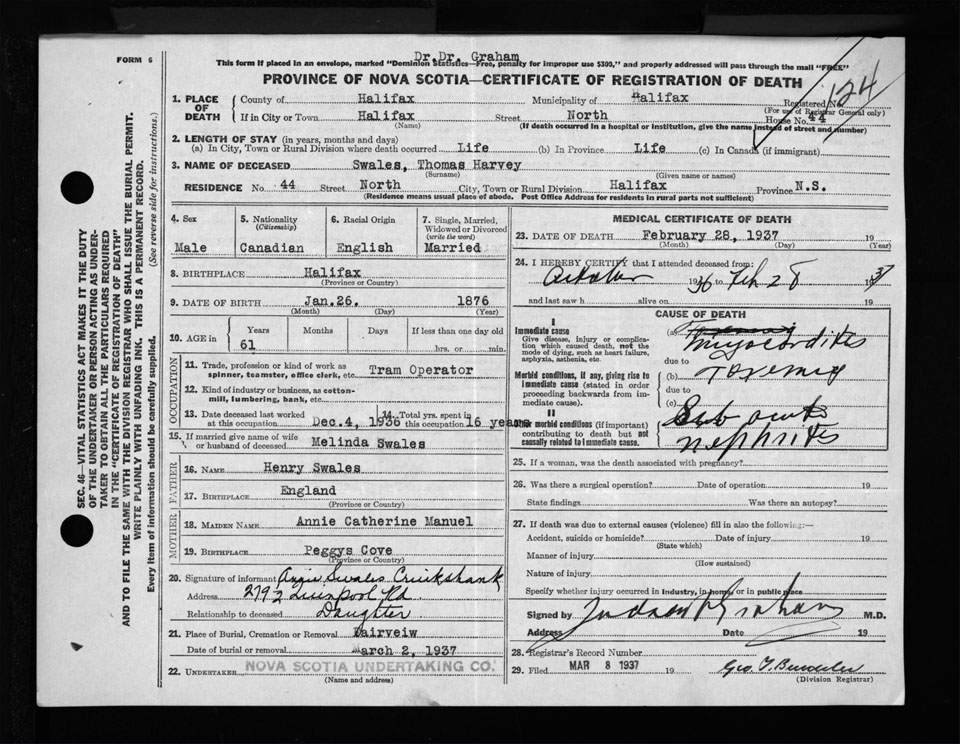 FORM 6
Dr. Dr. Graham
This form if placed in an envelope, marked "Dominion Statistics—Free, penalty for improper use $300," and properly addressed will pass through the mail "FREE"
PROVINCE OF NOVA SCOTIA—CERTIFICATE OF REGISTRATION OF DEATH
124
1. PLACE OF DEATH County of Halifax Municipality of Halifax Registered No.
(For use of Registrar General only)
If in City or Town Halifax Street North House No. 44
(Name) (If death occurred in a hospital or institution, give the name instead of street and number)
2. LENGTH OF STAY (in years, months and days)
(a) In City, Town or Rural Division where death occurred Life (b) In Province Life (c) In Canada (if immigrant)
3. NAME OF DECEASED Swales, Thomas Harvey
(Surname) (Given name or names)
RESIDENCE No. 44 Street North City, Town or Rural Division Halifax Province N.S.
(Residence means usual place of abode. Post Office Address for residents in rural parts not sufficient)
4. Sex Male
5. Nationality (Citizenship) Canadian
6. Racial Origin English
7. Single, Married, Widowed or Divorced (write the word) Married
8. BIRTHPLACE Halifax
(Province or Country)
9. DATE OF BIRTH Jan. 26, 1876
(Month) (Day) (Year)
10. AGE in Years Months Days If less than one day old
61 hrs. or min.
OCCUPATION
11. Trade, profession or kind of work as spinner, teamster, office clerk, etc. Tram Operator
12. Kind of industry or business, as cotton-mill, lumbering, bank, etc.
13. Date deceased last worked at this occupation Dec. 4, 1936 14. Total yrs. spent in this occupation 16 years
15. If married give name of wife or husband of deceased Melinda Swales
FATHER
16. NAME Henry Swales
17. BIRTHPLACE England
(Province or Country)
MOTHER
18. MAIDEN NAME Annie Catherine Manuel
19. BIRTHPLACE Peggys Cove
(Province or Country)
20. Signature of informant Annie Swales Cruikshank
Address 279½ Liverpool Rd
Relationship to deceased Daughter
21. Place of Burial, Cremation or Removal Fairveiw
Date of burial or removal March 2, 1937
22. UNDERTAKER NOVA SCOTIA UNDERTAKING CO.
(Name and address)
MEDICAL CERTIFICATE OF DEATH
23. DATE OF DEATH February 28, 1937 19
(Month) (Day) (Year)
24. I HEREBY CERTIFY that I attended deceased from:
October 1936 to Feb 28 1937
and last saw h alive on 19
CAUSE OF DEATH
I
Immediate cause
Give disease, injury or complication which caused death, not the mode of dying, such as heart failure, asphyxia, asthenia, etc.
(a) Myocarditis
due to
Morbid conditions, if any, giving rise to immediate cause (stated in order proceeding backwards from immediate cause).
(b) Toxemia
due to
(c)
II
Other morbid conditions (if important) contributing to death but not causally related to immediate cause.
Sub acute
nephritis
25. If a woman, was the death associated with pregnancy?
26. Was there a surgical operation? Date of operation 19
State findings Was there an autopsy?
27. If death was due to external causes (violence) fill in also the following:—
Accident, suicide or homicide? Date of injury 19
(State which)
Manner of injury
(How sustained)
Nature of injury
Specify whether injury occurred in industry, in home, or in public place
Signed by Graham M.D.
Address Date 19
28. Registrar's Record Number
29. Filed MAR 8 1937 19
(Division Registrar)
SEC. 46—VITAL STATISTICS ACT MAKES IT THE DUTY
OF THE UNDERTAKER OR PERSON ACTING AS UNDER-
TAKER TO OBTAIN ALL THE PARTICULARS REQUIRED
IN THE "CERTIFICATE OF REGISTRATION OF DEATH"
AND TO FILE THE SAME WITH THE DIVISION REGISTRAR WHO SHALL ISSUE THE BURIAL PERMIT.
WRITE PLAINLY WITH UNFADING INK. THIS IS A PERMANENT RECORD.
Every item of information should be carefully supplied. (See reverse side for instructions.)